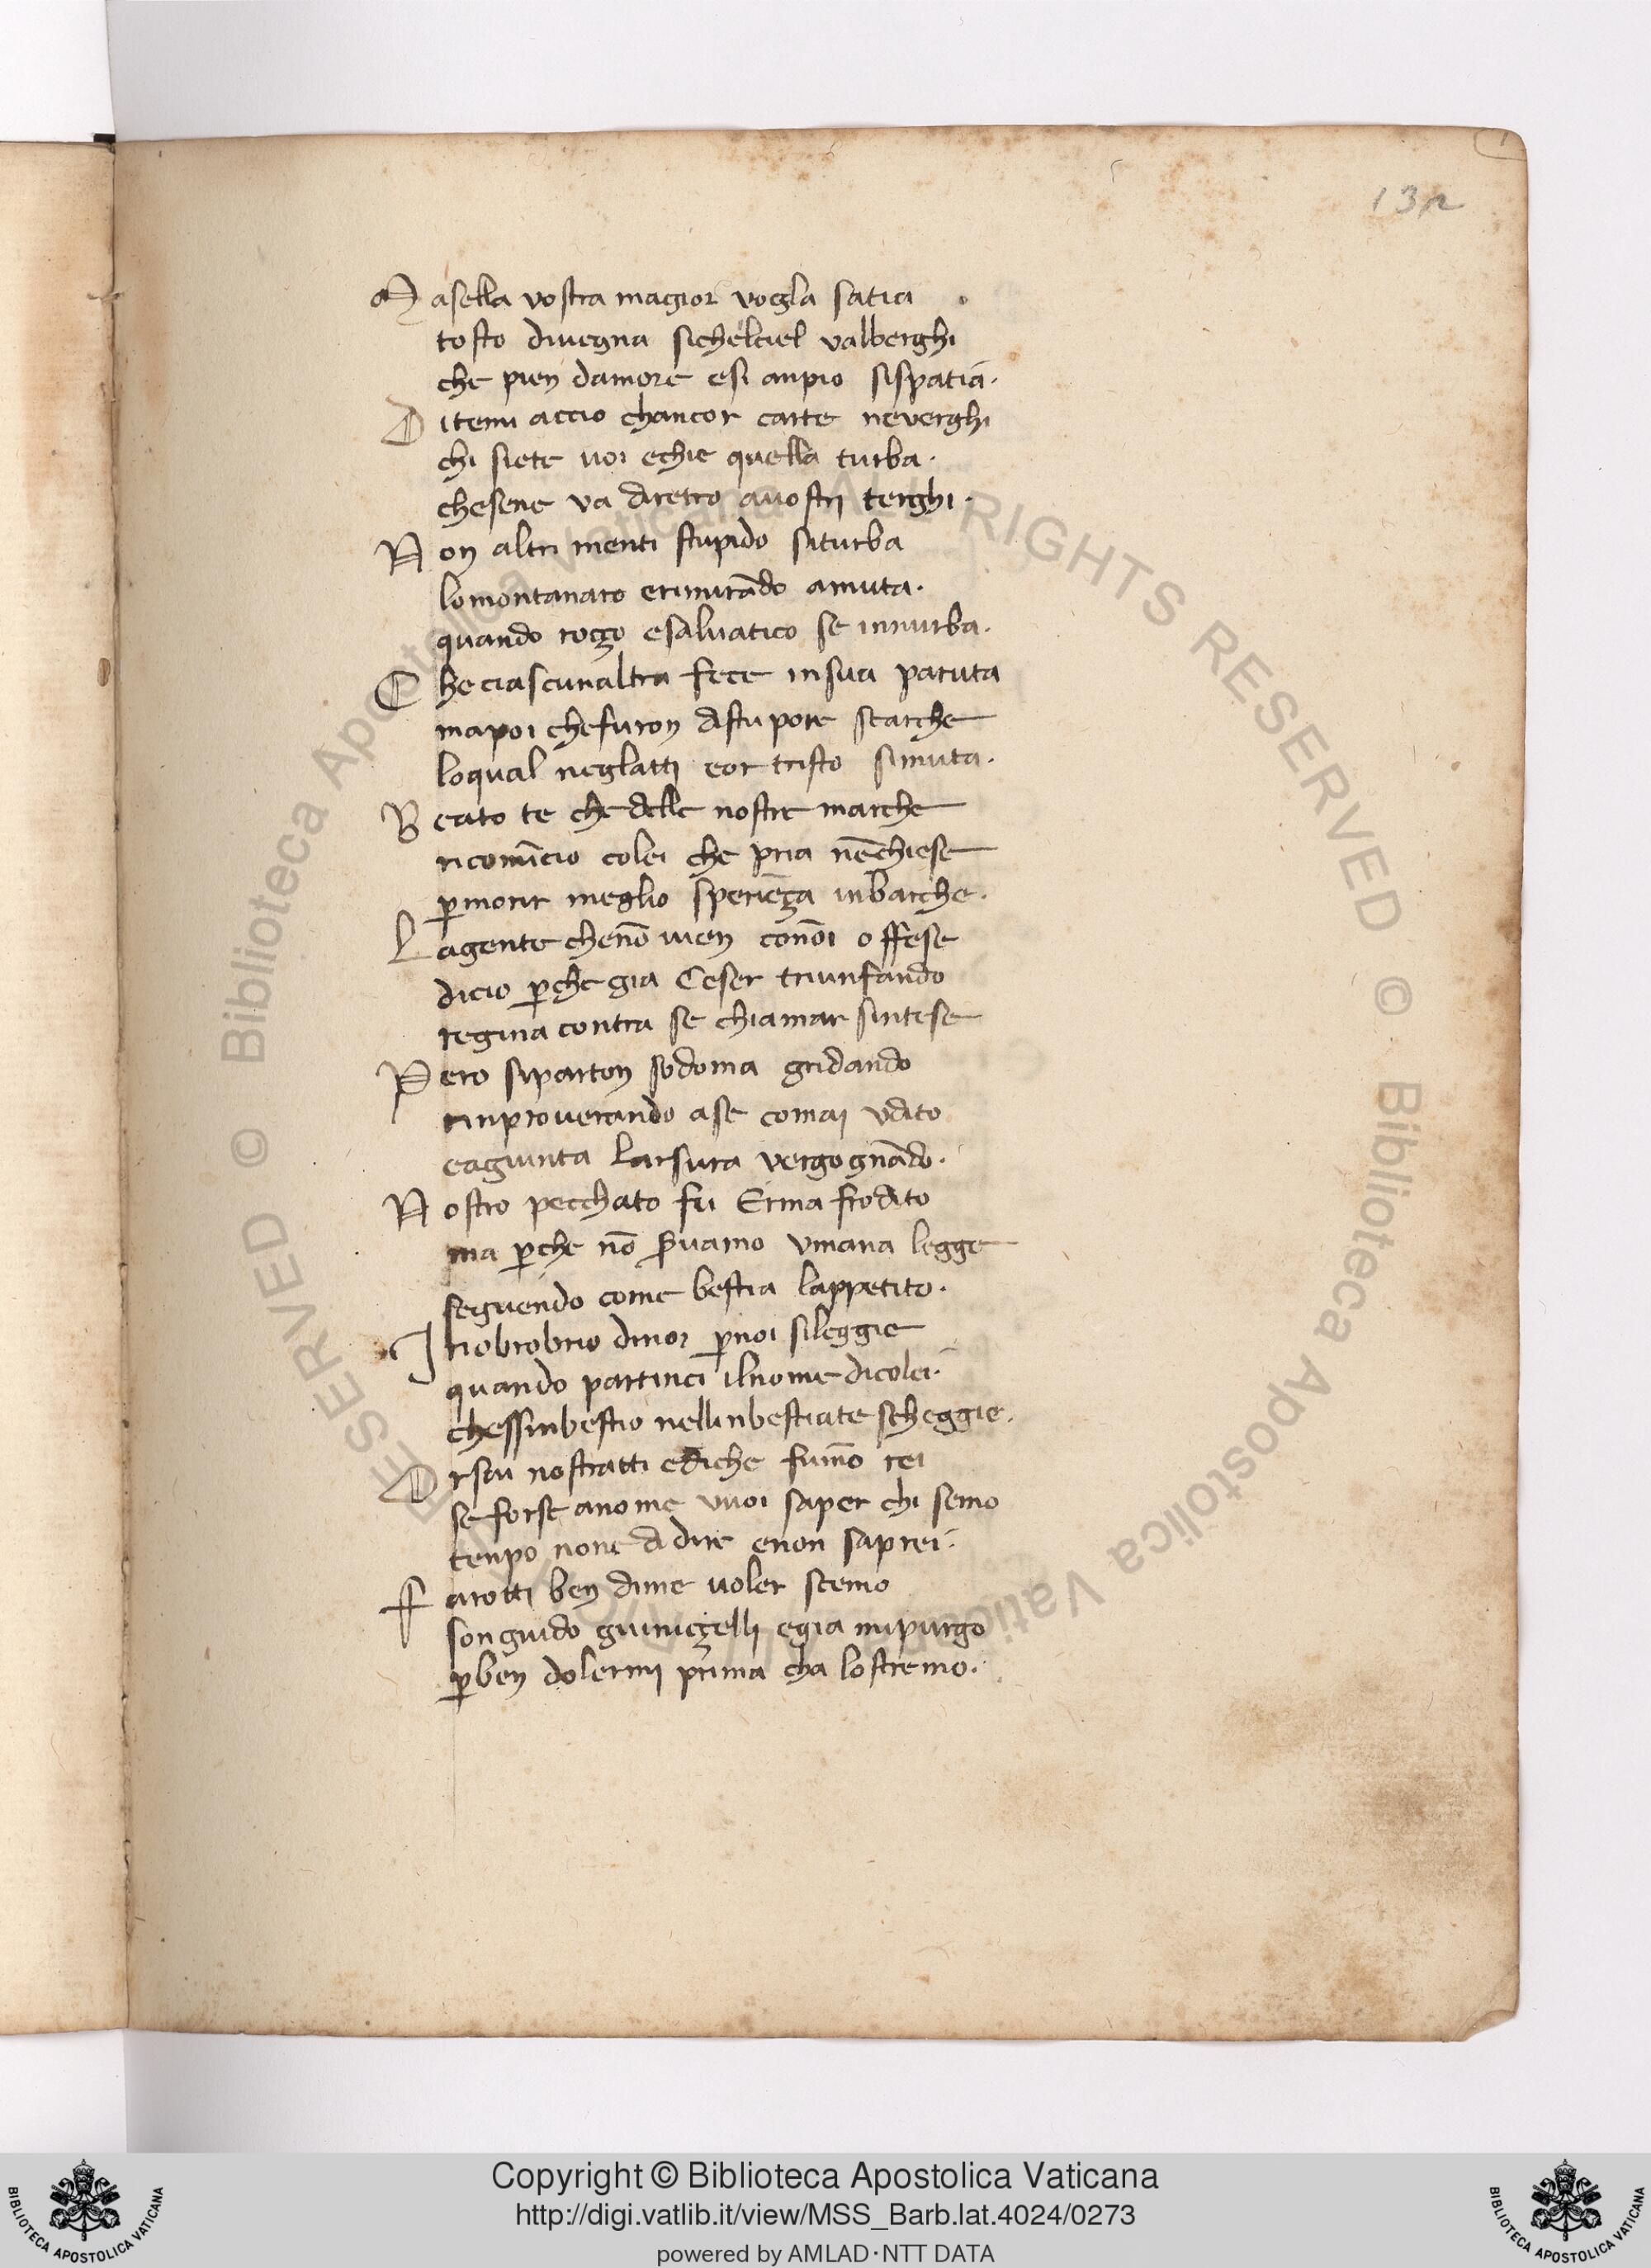 13n
Masella vostra magior vogla satia
tosto divegna sichelciel valberghi
che pien damore esi anpio sispatia.
Ditemi accio chancor carte neverghi
chi siete uoi echie quella turba.
chesene va diretro avostri terghi.
Non altri menti stupido siturba
lomontanaro erimirādo amuta.
quando rozo esaluatico se innurba.
Che ciascunaltra fece insua paruta
mapoi chefuron distupore scarche
loqual neglatti cor tristo simuta.
Beato te che delle nostre marche
ricomīcio colei che pria nēchiese
p̱morir meglio speriēza inbarche.
Lagente chenō uien cōnoi offese
dicio p̱che gia Ceser triunfando
regina contra se chiamar sintese
Pero siparton sodoma gridando
rinprouerando ase comai vdito
eagiunta larsura vergognādo.
Nostro pecchato fu Ermafrodito
ma p̱che nō s̄uamo vmana legge
seguendo come bestia lappetito.
Inobrobrio dinoi p̱noi sileggie
quando partinci ilnome dicolei.
chessinbestio nellinbestiate scheggie.
Orsai nostratti ediche fumō rei
se forse anome vuoi saper chi semo
tenpo none didire enon saprei.
Farotti ben dime uoler scemo
son guido guinizelli egia mipurgo
p̱ben dolermi prima cha lostremo.
© Biblioteca Apostolica Vaticana ALL RIGHTS RESERVED © Biblioteca Apostolica Vaticana ALL RIGHTS RESERVED
Copyright © Biblioteca Apostolica Vaticana
http://digi.vatlib.it/view/MSS_Barb.lat.4024/0273
powered by AMLAD·NTT DATA
BIBLIOTECA APOSTOLICA VATICANA
BIBLIOTECA APOSTOLICA VATICANA